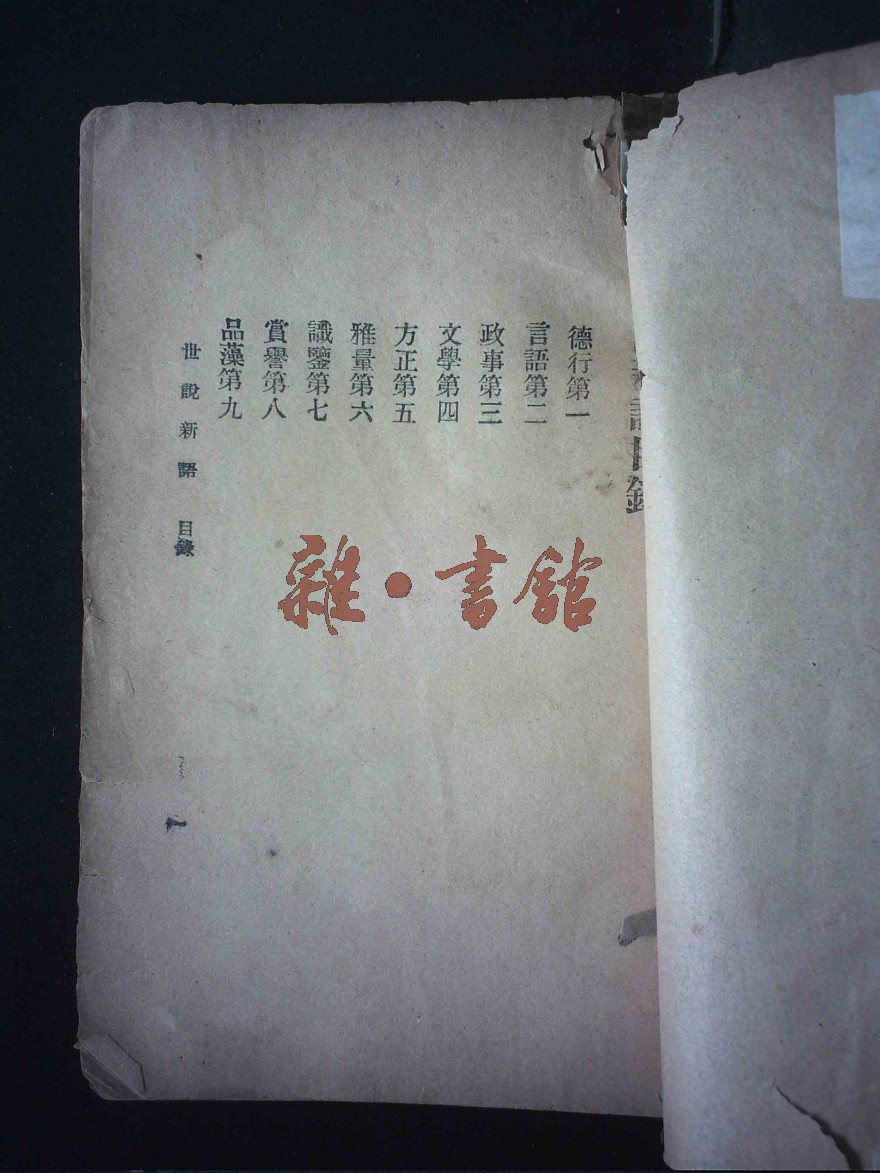 語目錄
德行第一
言語第二
政事第三
文學第四
方正第五
雅量第六
識鑒第七
賞譽第八
品藻第九
世說新語 目錄
一
雜·書館